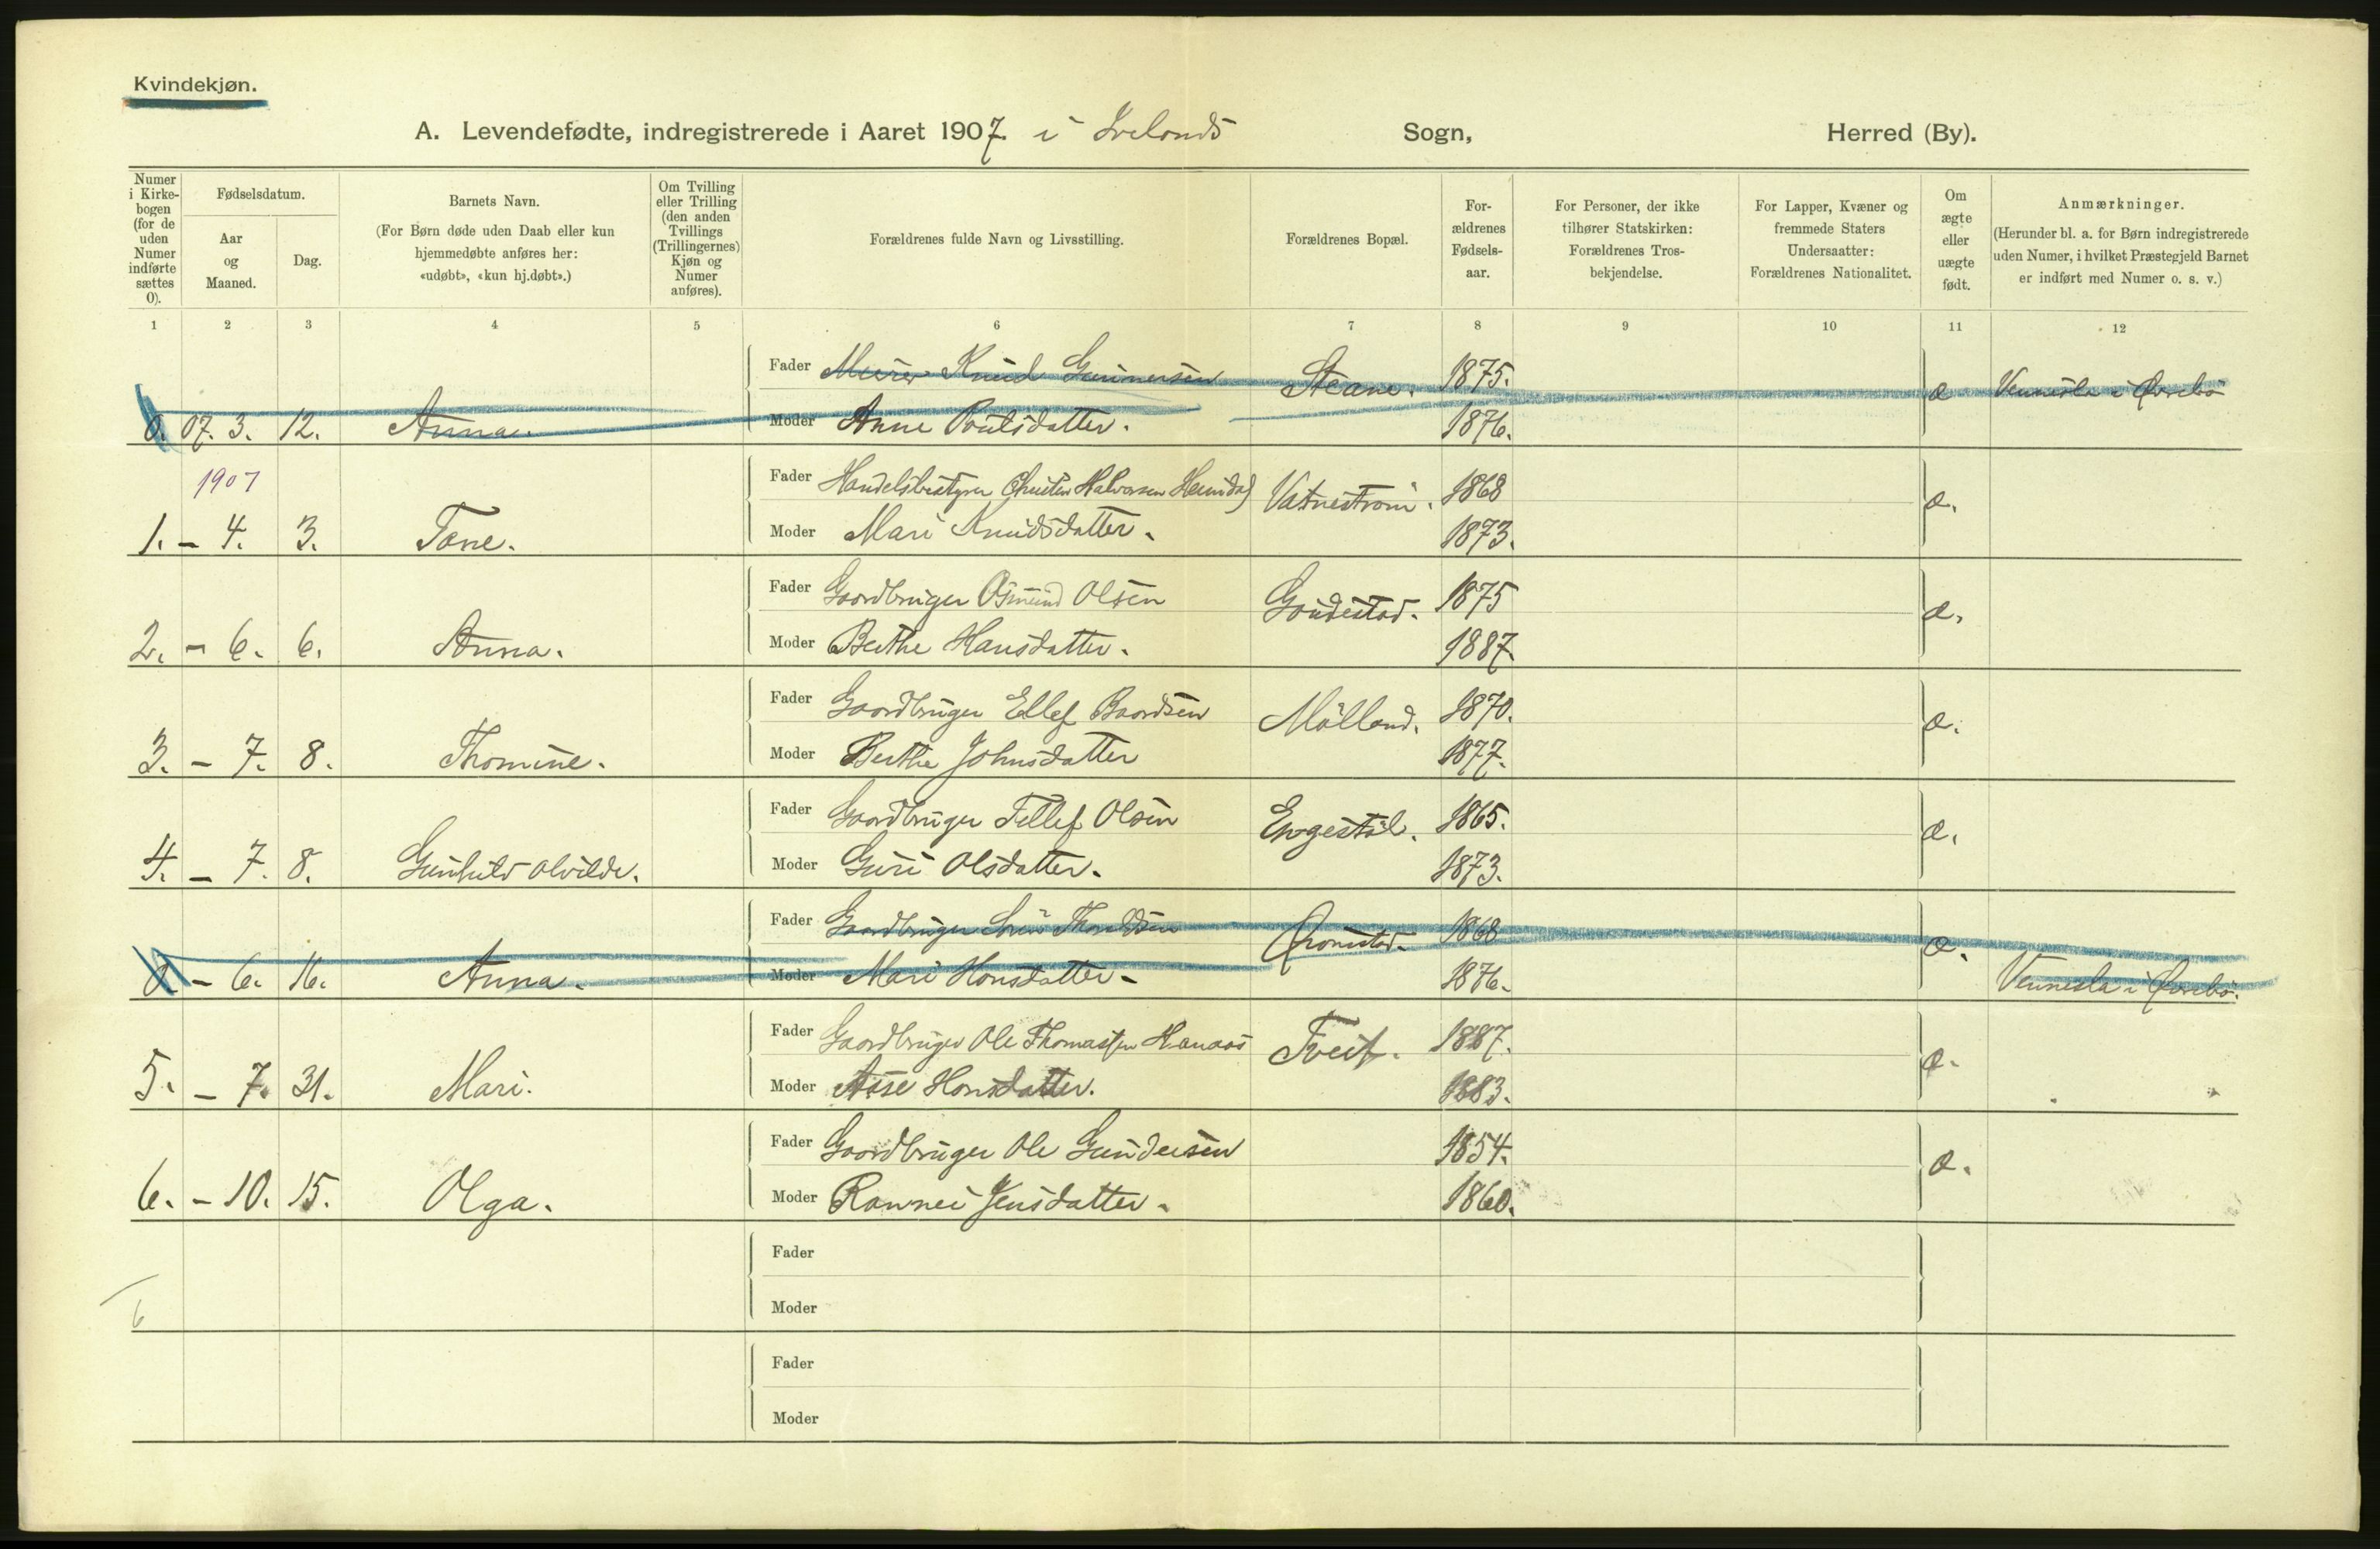 Kvindekjøn.
A. Levendefødte, indregistrerede i Aaret 1907 i Ivelands Sogn, Herred (By).
Numer i Kirkebogen (for de uden Numer indførte sættes 0).
Fødselsdatum.
Aar og Maaned.
Dag.
Barnets Navn.
(For Børn døde uden Daab eller kun hjemmedøbte anføres her: «udøbt», «kun hj.døbt».)
Om Tvilling eller Trilling (den anden Tvillings (Trillingernes) Kjøn og Numer anføres).
Forældrenes fulde Navn og Livsstilling.
Forældrenes Bopæl.
Forældrenes Fødselsaar.
For Personer, der ikke tilhører Statskirken: Forældrenes Trosbekjendelse.
For Lapper, Kvæner og fremmede Staters Undersaatter: Forældrenes Nationalitet.
Om ægte eller uægte født.
Anmærkninger.
(Herunder bl. a. for Børn indregistrerede uden Numer, i hvilket Præstegjeld Barnet er indført med Numer o. s. v.)
1 2 3 4 5 6 7 8 9 10 11 12
Fader Murer Knud Gunnersen Steane. 1875. æ Vennesla i Øvrebö
0. 07. 3. 12. Anna. Moder Anne 1876.
1907
Fader Handelsbestyrer Halvorsen Vatneström. 1868 æ.
1. – 4. 3. Tone. Moder Mari Knudsdatter. 1873.
Fader Gaardbruger Osmund Olsen 1875 æ.
2. – 6. 6. Anna. Moder Berthe Hansdatter. 1887.
Fader Gaardbruger Ellef Baardsen Mölland. 1870. æ.
3. – 7. 8. Thomine. Moder Berthe Johnsdatter 1877.
Fader Gaardbruger Tellef Olsen Engestöl. 1865. æ.
4. – 7. 8. Gunhild Olvilde. Moder Guri Olsdatter. 1873.
Fader Gaardbruger 1868 æ.
0. – 6. 16. Anna. Moder Mari Honsdatter. 1876. Vennesla i Øvrebö.
Fader Gaardbruger Ole Thomassen Hanaas Tveit. 1887. æ.
5. – 7. 31. Mari. Moder Aase Honsdatter. 1883.
Fader Gaardbruger Ole Gundersen 1854. æ.
6. – 10. 15. Olga. Moder Rannei Jensdatter. 1860.
Fader
6 Moder
Fader
Moder